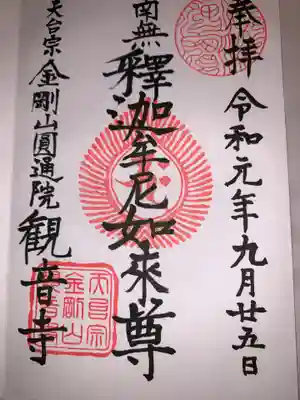 奉拝
令和元年九月廿五日
南無
釋迦牟尼如来尊
天台宗
金剛山圓通院
観音寺